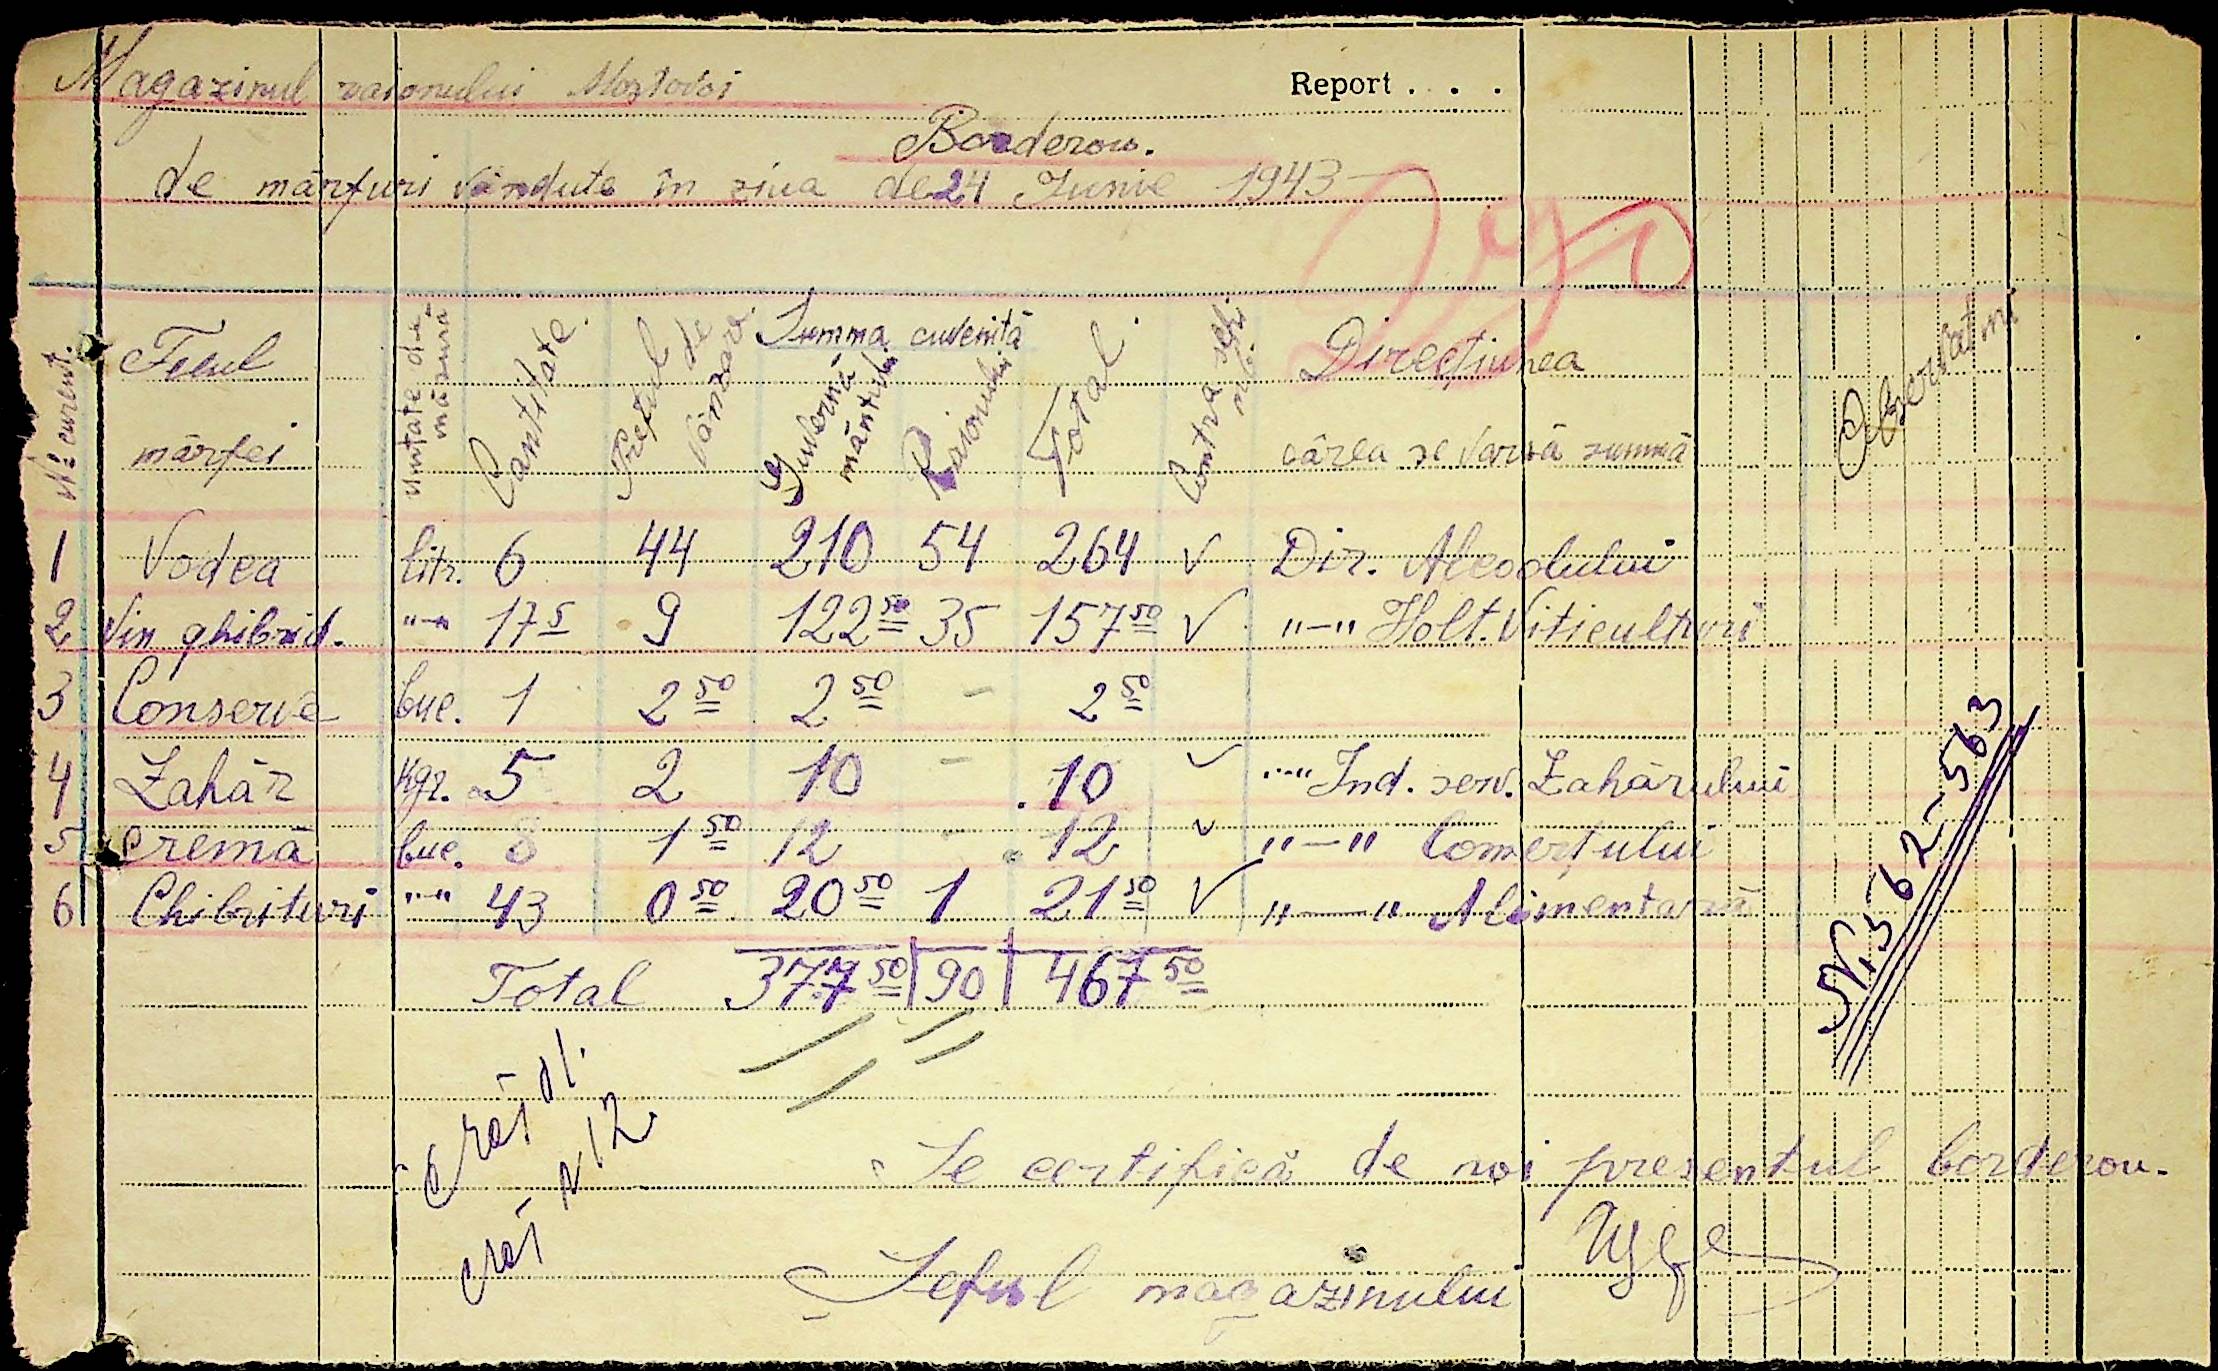 Magazinul raionului Mostovoi
Report . . . .
Borderou.
de mărfuri vândute în ziua de 24 Iunie 1943
№ curent. Felul mărfei Unitate de măsură Cantitate. Prețul de vânzar. Summa cuvenită Guvernă mântului Raionului Total. Contra Direcțiunea cărea se varsă summă Observațiuni
1 Vodca litr. 6 44 210 54 264 V Dir. Alcoolului
2 Vin ghibrid. "—" 17 5 9 122 50 35 157 50 V "—" Holt. Viticulturi
3 Conserve buc. 1 2 50 2 50 - 2 50
4 Zahăr kgr. 5 2 10 - 10 V "—" Ind. serv. Zahărului
5 Cremă buc. 8 1 50 12 - 12 V "—" Comerțului
6 Chibrituri "—" 43 0 50 20 50 1 21 50 V "—" Alimentară
Total 377 50 90 467 50
562-563
Se certifică de noi presentul borderou.
Șeful magazinului